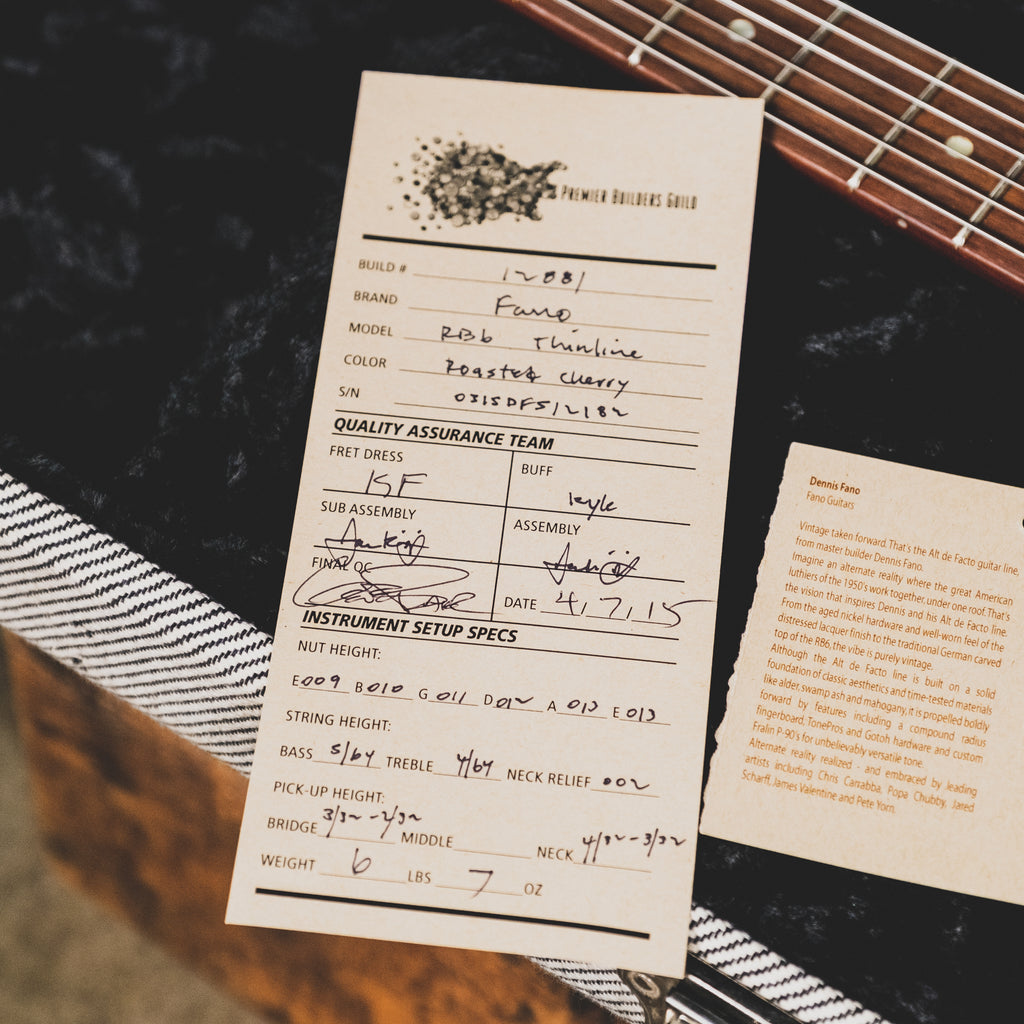 PREMIER BUILDERS GUILD
BUILD # 12081
BRAND Fano
MODEL RB6 Thinline
COLOR Roasted Cherry
S/N
QUALITY ASSURANCE TEAM
FRET DRESS BUFF
KSF Kyle
SUB ASSEMBLY ASSEMBLY
FINAL QC DATE 4, 7, 15
INSTRUMENT SETUP SPECS
NUT HEIGHT:
E 009 B 010 G 011 D 012 A 013 E 013
STRING HEIGHT:
BASS 5/64 TREBLE 4/64 NECK RELIEF .002
PICK-UP HEIGHT:
BRIDGE 3/32-2/32 MIDDLE NECK 4/32-3/32
WEIGHT 6 LBS 7 OZ
Dennis Fano
Fano Guitars
Vintage taken forward. That's the Alt de Facto guitar line,
from master builder Dennis Fano.
Imagine an alternate reality where the great American
luthiers of the 1950's work together, under one roof. That's
the vision that inspires Dennis and his Alt de Facto line.
From the aged nickel hardware and well-worn feel of the
distressed lacquer finish to the traditional German carved
top of the RB6, the vibe is purely vintage.
Although the Alt de Facto line is built on a solid
foundation of classic aesthetics and time-tested materials
like alder, swamp ash and mahogany, it is propelled boldly
forward by features including a compound radius
fingerboard, TonePros and Gotoh hardware and custom
Fralin P-90's for unbelievably versatile tone.
Alternate reality realized - and embraced by leading
artists including Chris Carrabba, Popa Chubby, Jared
Scharff, James Valentine and Pete Yorn.